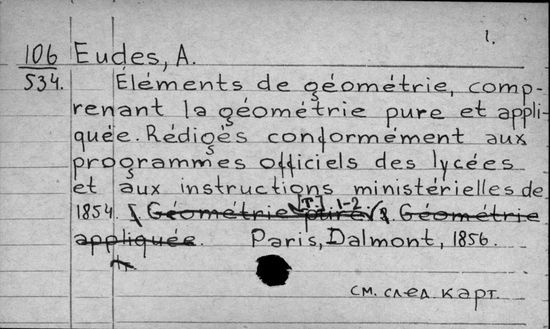 1.
106 Eudes, A.
534. Eléments de géométrie, comp-
renant la géométrie pure et appli-
quée. Rédigés conformément aux
programmes officiels des lycées
et aux instructions ministérielles de
[T.] 1-2.
1854. Géométrie pure. Géométrie
appliquée. Paris, Dalmont, 1856.
см. след. карт.